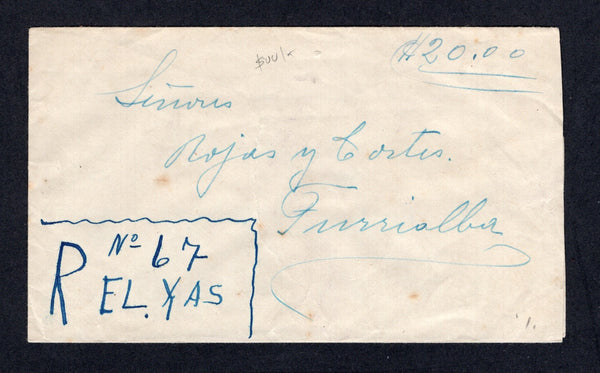 ₡20.00
Señores
Rojas y Cortes.
Turrialba
R Nº 67
EL. YAS